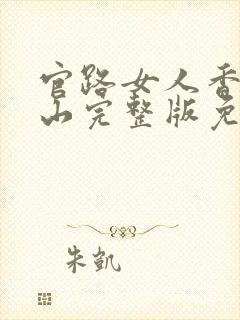 官路女人香
山完整版免
朱凯